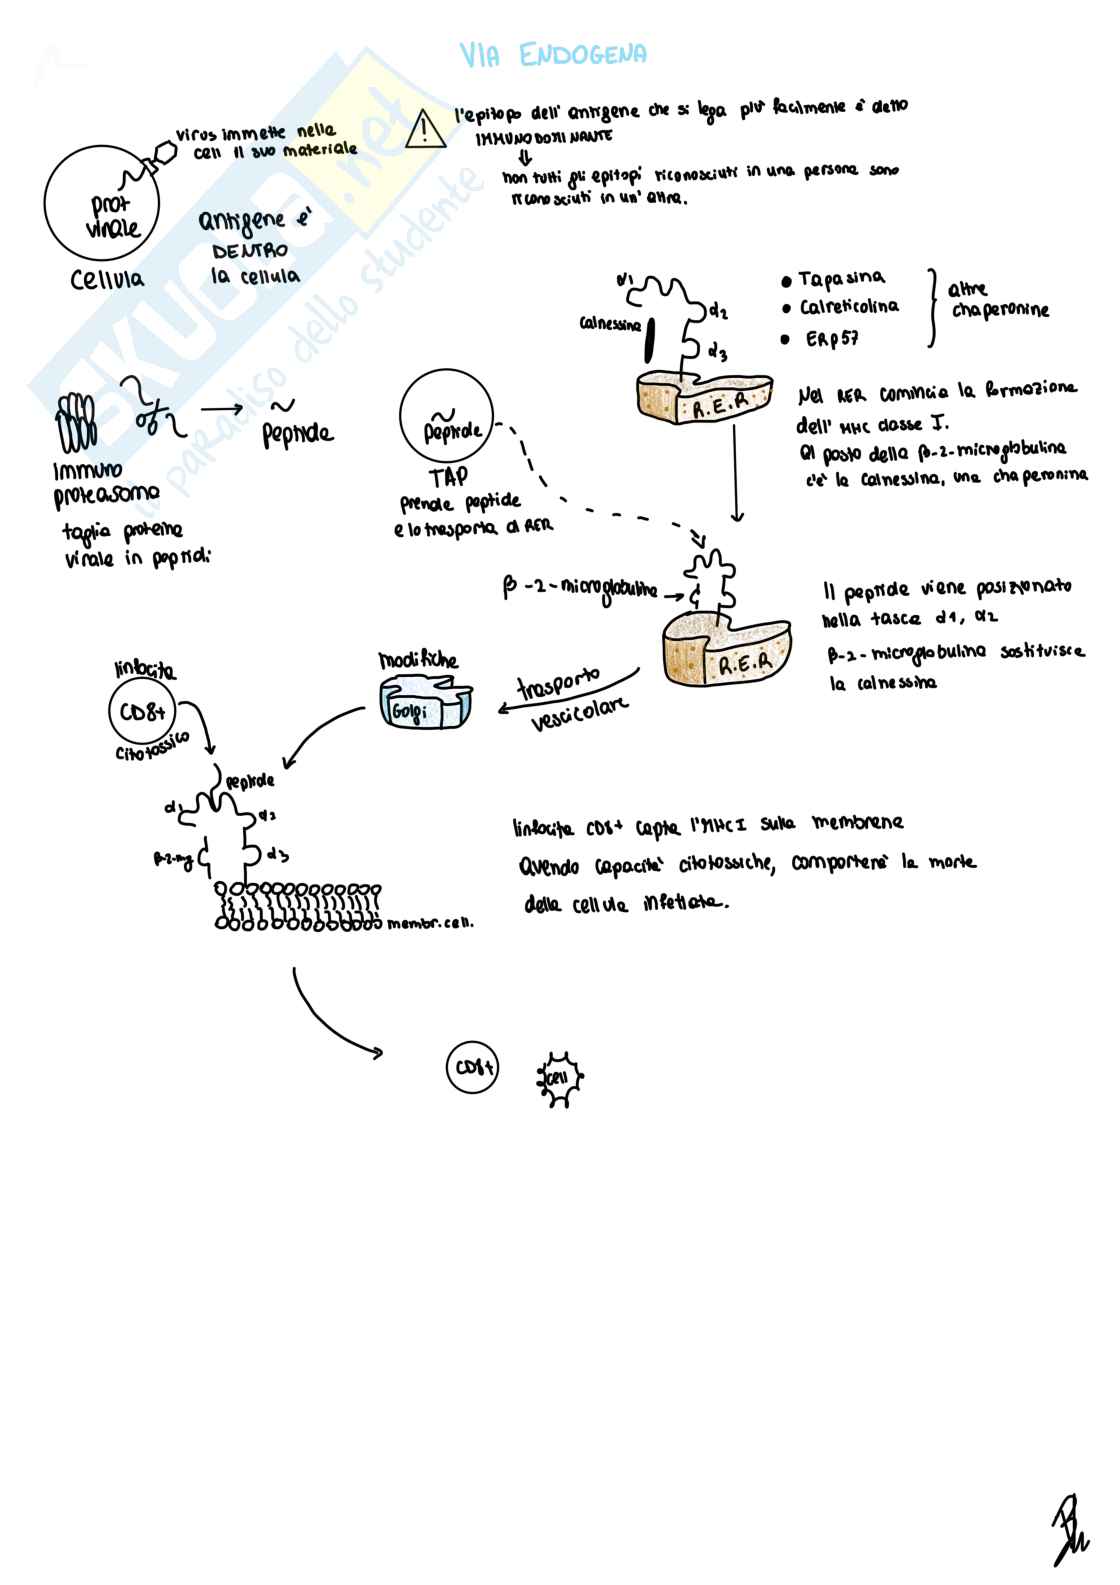 VIA ENDOGENA
virus immette nella
cell il suo materiale
prot
virale
Cellula
antigene è
DENTRO
la cellula
l'epitopo dell' antigene che si lega più facilmente è detto
IMMUNODOMINANTE
non tutti gli epitopi riconosciuti in una persona sono
riconosciuti in un' altra.
SKUOLA.net
il paradiso dello studente
α1
α2
α3
Calnessina
R.E.R
• Tapasina
• Calreticolina
• ERp57
altre
chaperonine
Nel RER comincia la formazione
dell' MHC classe I.
Al posto della β-2-microglobulina
c'è la calnessina, una chaperonina
Immuno
proteasoma
taglia proteina
virale in peptidi
peptide
peptide
TAP
prende peptide
e lo trasporta al RER
β-2-microglobulina
R.E.R
Il peptide viene posizionato
nella tasca α1, α2
β-2-microglobulina sostituisce
la calnessina
trasporto
vescicolare
modifiche
Golgi
linfocita
CD8+
citotossico
peptide
α1
α2
β-2-mg
α3
membr. cell.
linfocita CD8+ capta l'MHC I sulla membrana
Avendo capacità citotossiche, comporterà la morte
della cellula infettata.
CD8+
cell